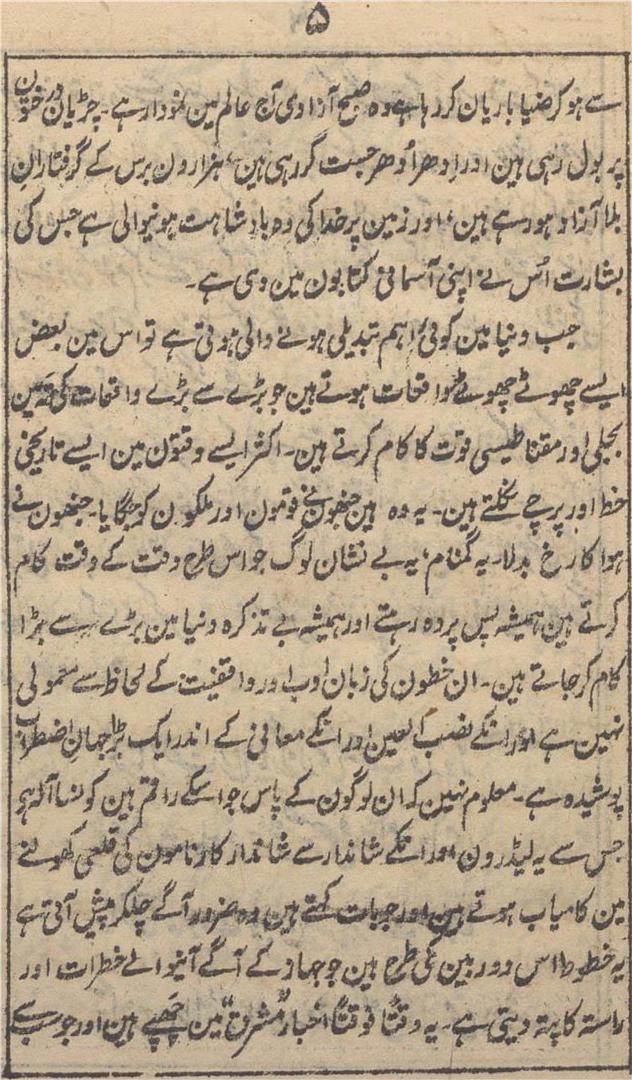 ۵
سے ہوکر ضیا باریان کر رہا ہے وہ صبح آزادی آج عالم مین نمودار ہے۔ چڑیان درختون
پر بول رہی ہین اور اِدھر اُدھر جست کر رہی ہین، ہزارون برس کے گرفتارانِ
بلا آزاد ہو رہے ہین، اور زمین پر خدا کی وہ بادشاہت ہونیوالی ہے جس کی
بشارت اُس نے اپنی آسمانی کتابون مین دی ہے۔
جب دنیا مین کوئی اہم تبدیلی ہونے والی ہوتی ہے تو اس مین بعض
ایسے چھوٹے چھوٹے واقعات ہوتے ہین جو بڑے سے بڑے واقعات کی تہ مین
بجلی اور مقناطیسی قوت کا کام کرتے ہین۔ اکثر ایسے وقتون مین ایسے تاریخی
خط اور پرچے نکلتے ہین۔ یہ وہ ہین جنھون نے قومون اور ملکون کو جگایا۔ جنھون نے
ہوا کا رخ بدلا۔ یہ گمنام، یہ بے نشان لوگ جو اس طرح وقت کے وقت کام
کرتے ہین ہمیشہ پس پردہ رہتے اور ہمیشہ بے تذکرہ دنیا مین بڑے سے بڑا
کام کر جاتے ہین۔ ان خطون کی زبان ادب اور واقفیت کے لحاظ سے معمولی
نہین ہے اور انکے نصب العین اور انکے معانی کے اندر ایک بڑا جہان اضطراب
پوشیدہ ہے۔ معلوم نہین کہ ان لوگون کے پاس جو اسکے راقم ہین کونسا آلہ ہو
جس سے یہ لیڈرون اور انکے شاندار سے شاندار کارنامون کی قلعی کھولنے
مین کامیاب ہوتے ہین اور جو بات کہتے ہین وہ ضرور آگے چلکر پیش آتی ہے
یہ خطوط اس دوربین کی طرح ہین جو جہاز کے آگے آنیوالے خطرات اور
راستہ کا پتہ دیتی ہے۔ یہ وقتًا فوقتًا اخبار "مشرق" مین چھپے ہین اور جو سب سے